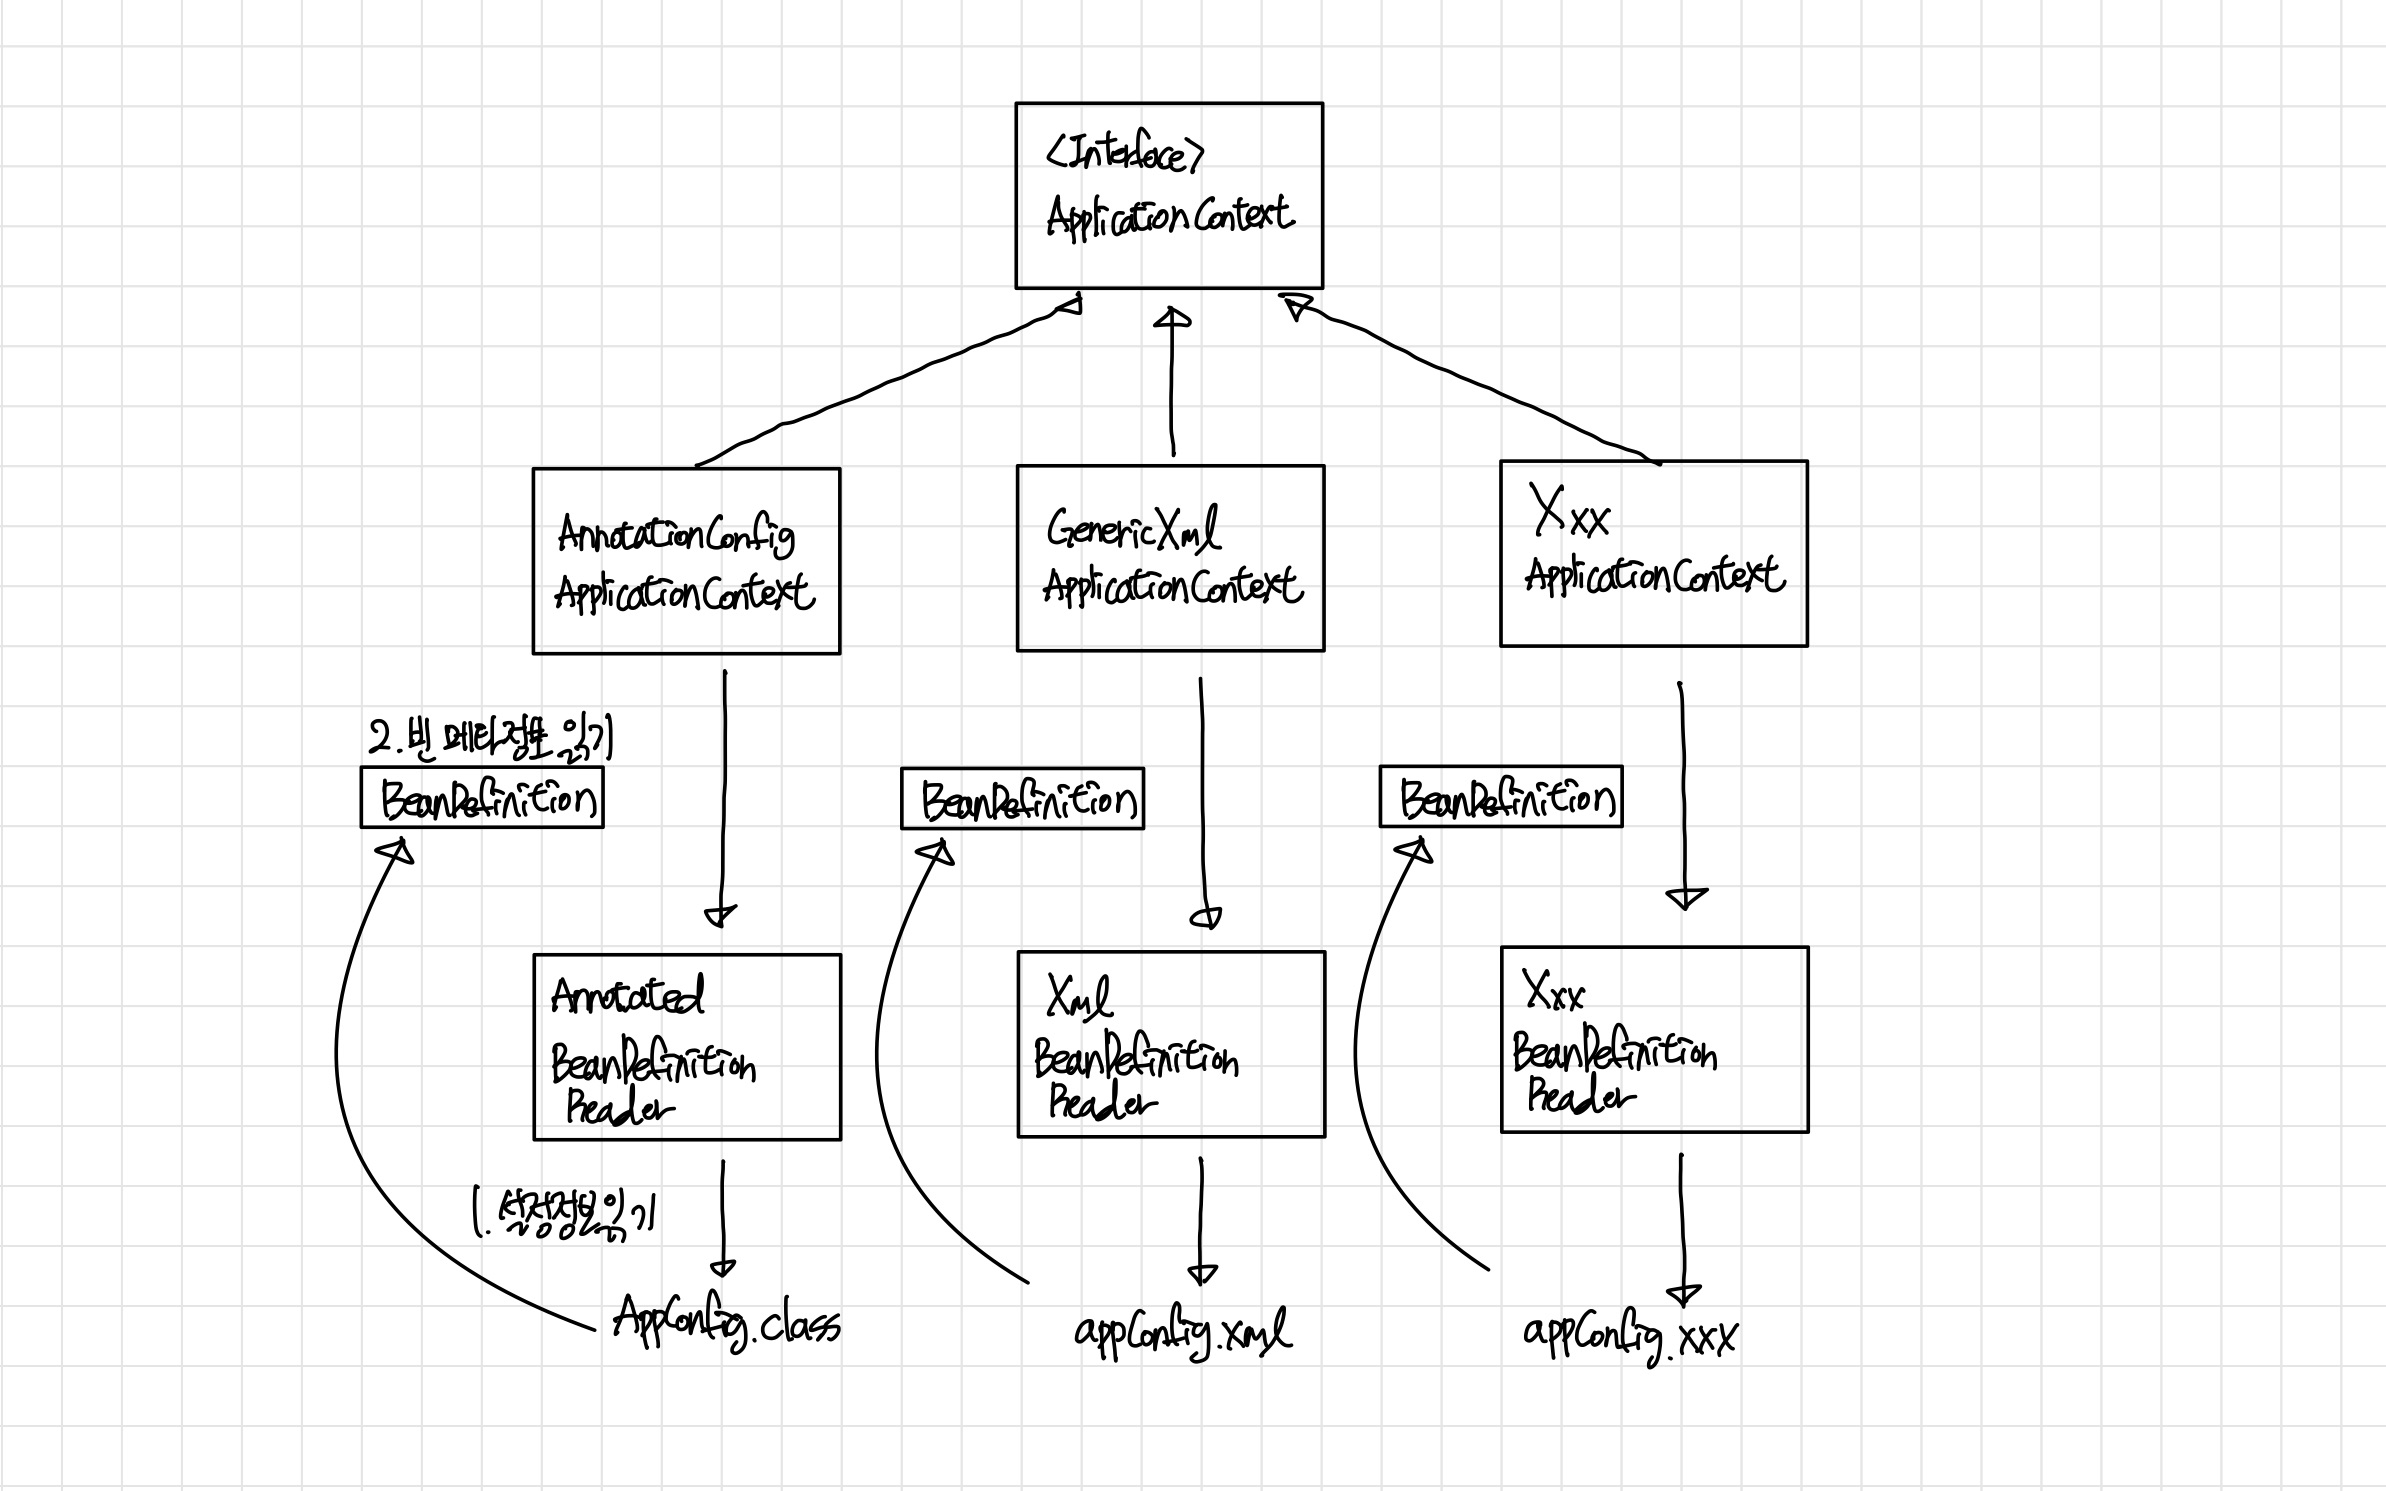 <Interface>
ApplicationContext
AnnotationConfig
ApplicationContext
GenericXml
ApplicationContext
Xxx
ApplicationContext
2. 빈 메타정보 읽기
BeanDefinition
BeanDefinition
BeanDefinition
Annotated
BeanDefinition
Reader
Xml
BeanDefinition
Reader
Xxx
BeanDefinition
Reader
1. 설정정보 읽기
AppConfig.class
appConfig.xml
appConfig.xxx